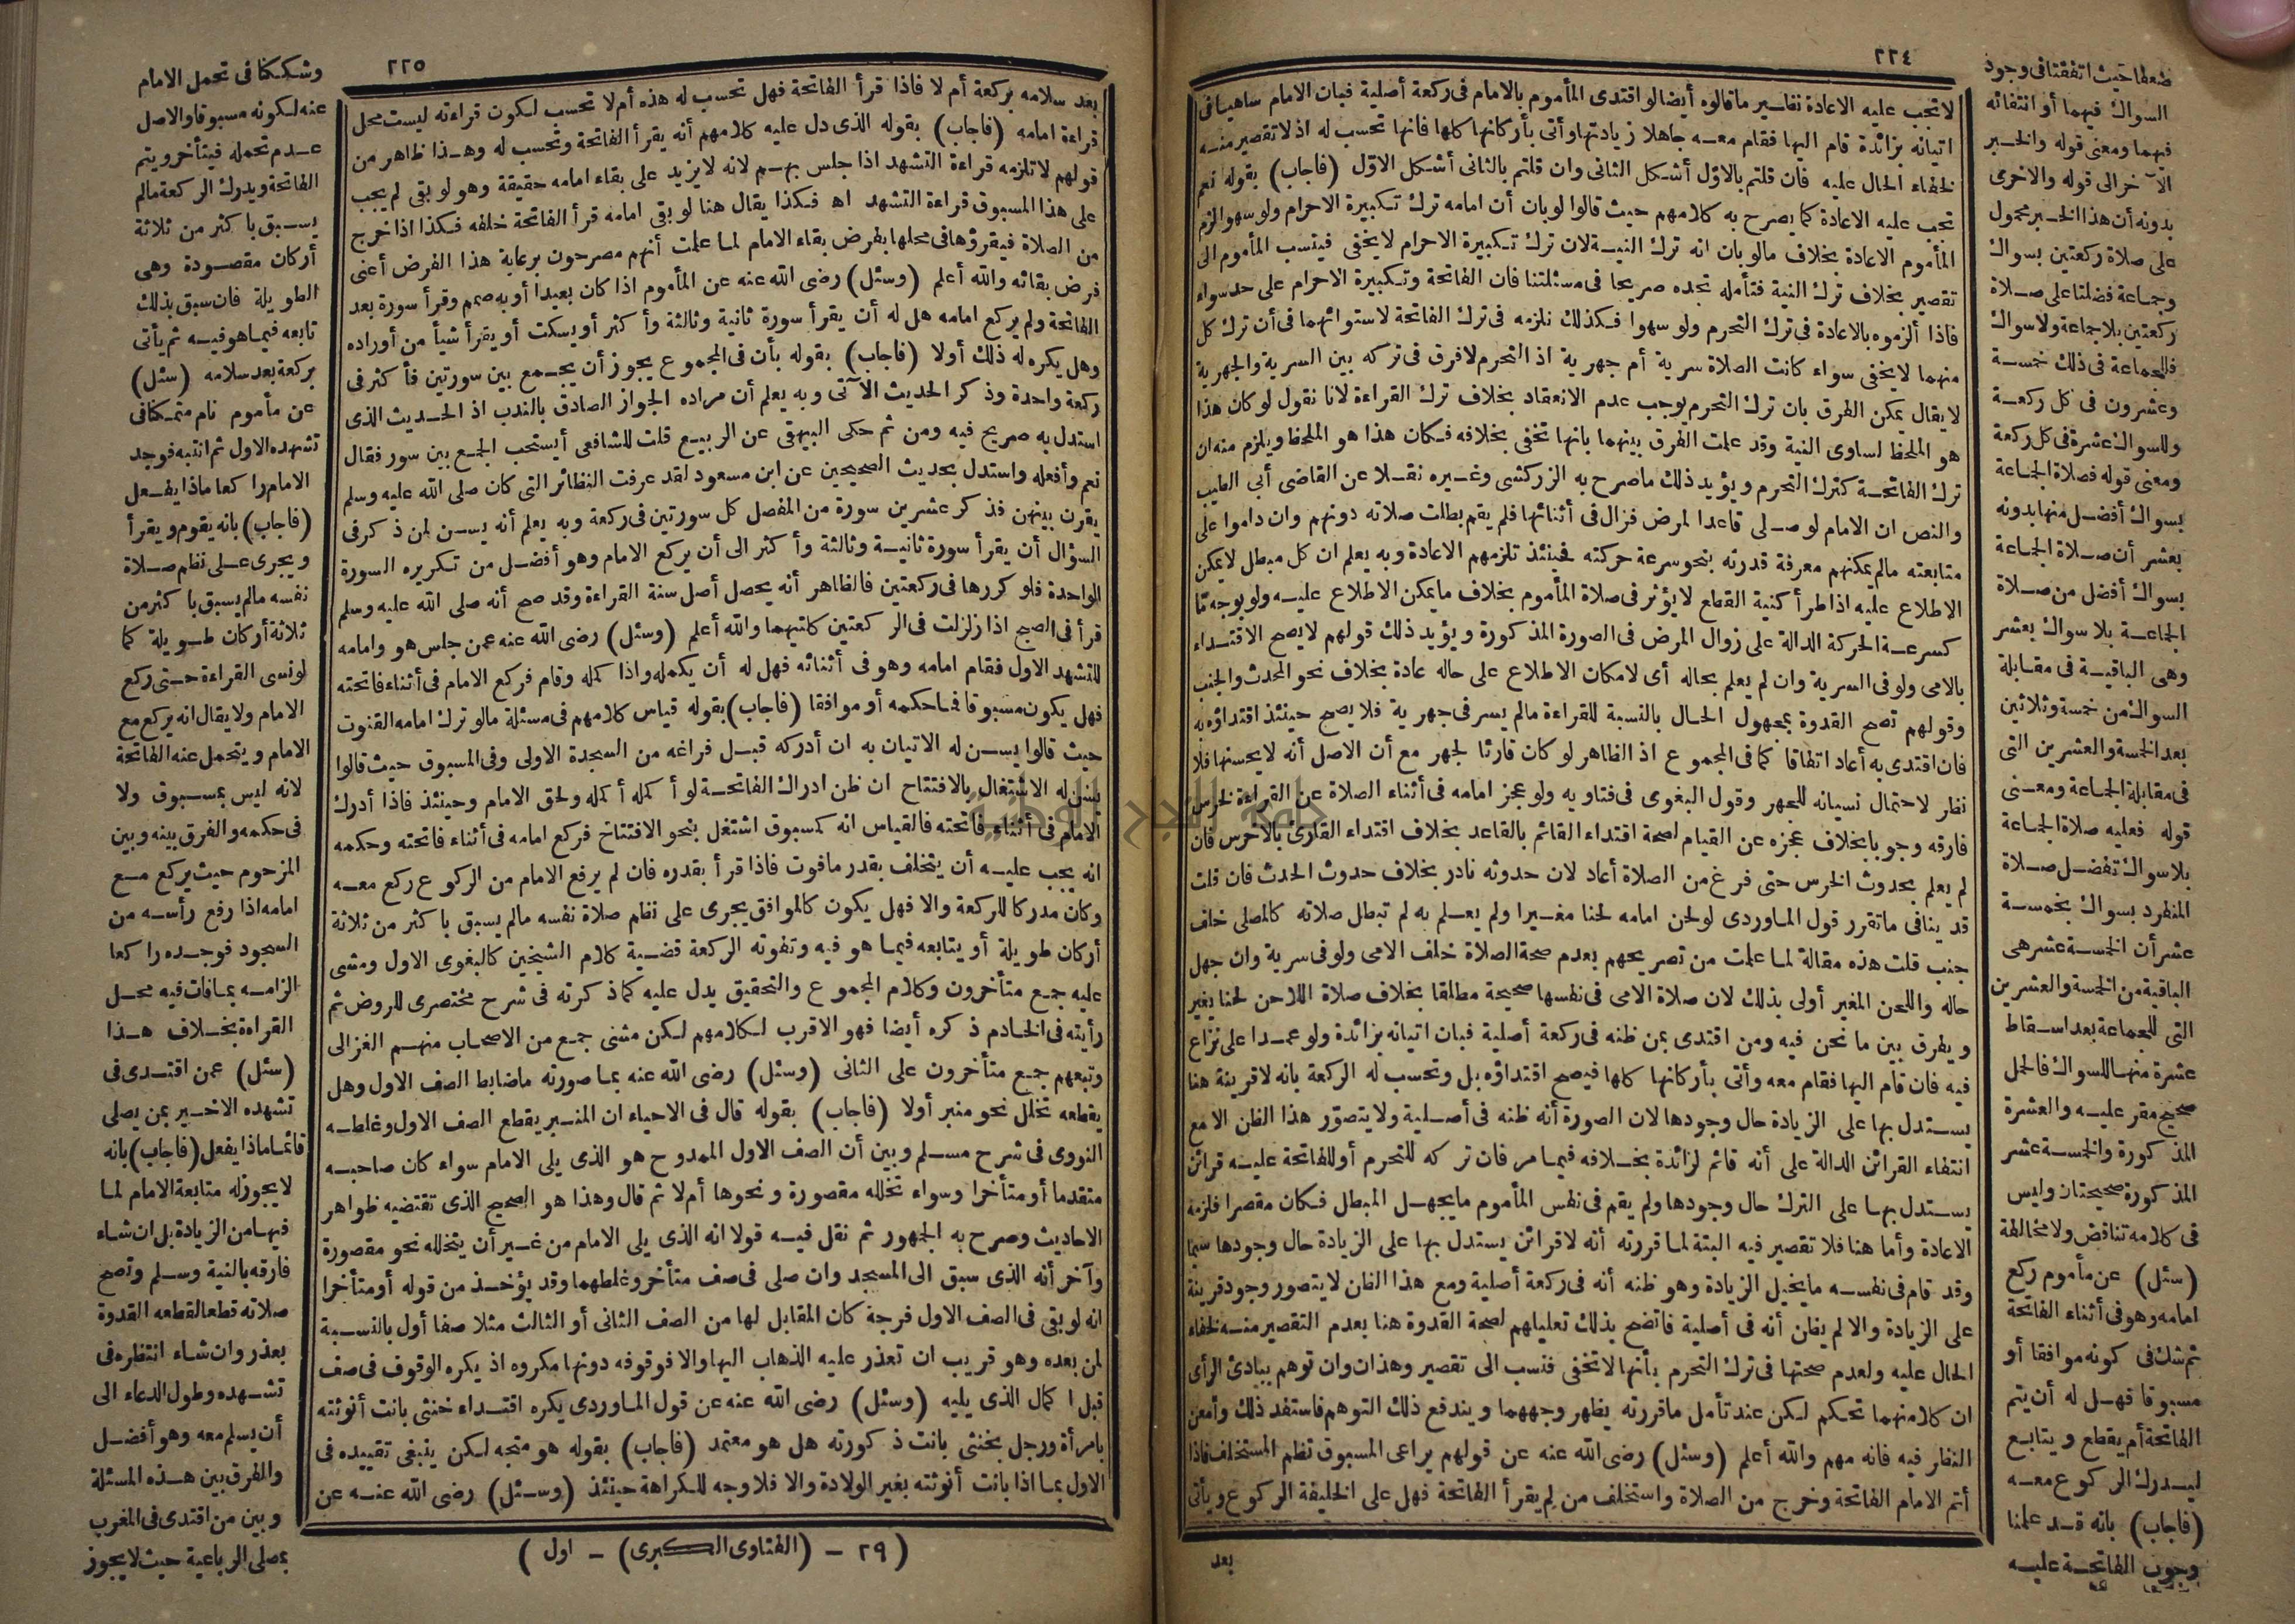 ٢٢٤
لا تجب عليه الاعادة نفاسير ما قالوه أيضا لو اقتدى المأموم بالامام فى ركعة أصلية فبان الامام ساهيا فى
اتيانه بزائدة قام اليها فقام معه جاهلا زيادتها وأتى بأركانها كلها فانها تحسب له اذ لا تقصير منه
لخفاء الحال عليه فان قلتم بالاوّل أشكل الثانى وان قلتم بالثانى أشكل الاوّل (فاجاب) بقوله نعم
تجب عليه الاعادة كما يصرح به كلامهم حيث قالوا لو بان أن امامه ترك تكبيرة الاحرام ولو سهوا لزم
المأموم الاعادة بخلاف ما لو بان انه ترك النية لان ترك تكبيرة الاحرام لا يخفى فينسب المأموم الى
تقصير بخلاف ترك النية فتأمله تجده صريحا فى مسئلتنا فان الفاتحة وتكبيرة الاحرام على حد سواء
فاذا ألزموه بالاعادة فى ترك التحرم ولو سهوا فكذلك نلزمه فى ترك الفاتحة لاستوائهما فى أن ترك كل
منهما لا يخفى سواء كانت الصلاة سرية أم جهرية اذ التحرم لا فرق فى تركه بين السرية والجهرية
لا يقال يمكن الفرق بان ترك التحرم يوجب عدم الانعقاد بخلاف ترك القراءة لانا نقول لو كان هذا
هو الملحظ لساوى النية وقد علمت الفرق بينهما بانها تخفى بخلافه فكان هذا هو الملحظ ويلزم منه ان
ترك الفاتحة كترك التحرم ويؤيد ذلك ما صرح به الزركشى وغيره نقلا عن القاضى أبى الطيب
والنص ان الامام لو صلى قاعدا لمرض فزال فى أثنائها فلم يقم بطلت صلاته دونهم وان داموا على
متابعته مالم يمكنهم معرفة قدرته بنحو سرعة حركته فحينئذ تلزمهم الاعادة وبه يعلم ان كل مبطل لا يمكن
الاطلاع عليه اذا طرأ كنية القطع لا يؤثر فى صلاة المأموم بخلاف ما يمكن الاطلاع عليه ولو بوجه مّا
كسرعة الحركة الدالة على زوال المرض فى الصورة المذكورة ويؤيد ذلك قولهم لا يصح الاقتداء
بالامى ولو فى السرية وان لم يعلم بحاله أى لامكان الاطلاع على حاله عادة بخلاف نحو المحدث والجنب
وقولهم تصح القدوة بمجهول الحال بالنسبة للقراءة مالم يسر فى جهرية فلا يصح حينئذ اقتداؤه به
فان اقتدى به أعاد اتفاقا كما فى المجموع اذ الظاهر لو كان قارئا لجهر مع أن الاصل أنه لا يحسنها فلا
نظر لاحتمال نسيانه للجهر وقول البغوى فى فتاويه ولو عجز امامه فى أثناء الصلاة عن القراءة لخرس
فارقه وجوبا بخلاف عجزه عن القيام لصحة اقتداء القائم بالقاعد بخلاف اقتداء القارئ بالاخرس فان
لم يعلم بحدوث الخرس حتى فرغ من الصلاة أعاد لان حدوثه نادر بخلاف حدوث الحدث فان قلت
قد ينافى ما تقرر قول الماوردى لو لحن امامه لحنا مغيرا ولم يعلم به لم تبطل صلاته كالمصلى خلف
جنب قلت هذه مقالة لما علمت من تصريحهم بعدم صحة الصلاة خلف الامى ولو فى سرية وان جهل
حاله واللحن المغير أولى بذلك لان صلاة الامى فى نفسها صحيحة مطلقا بخلاف صلاة اللاحن لحنا يغير
ويفرق بين ما نحن فيه ومن اقتدى بمن ظنه فى ركعة أصلية فبان اتيانه بزائدة ولو عمدا على نزاع
فيه فان قام اليها فقام معه وأتى بأركانها كلها فيصح اقتداؤه بل وتحسب له الركعة بانه لا قرينة هنا
يستدل بها على الزيادة حال وجودها لان الصورة أنه ظنه فى أصلية ولا يتصوّر هذا الظن الا مع
انتفاء القرائن الدالة على أنه قائم لزائدة بخلافه فيما مر فان تركه للتحرم أو للفاتحة عليه قرائن
يستدل بها على الترك حال وجودها ولم يقم فى نفس المأموم ما يجهل المبطل فكان مقصرا فلزمه
الاعادة وأما هنا فلا تقصير فيه البتة لما قررته أنه لا قرائن يستدل بها على الزيادة حال وجودها سيما
وقد قام فى نفسه ما يخيل الزيادة وهو ظنه أنه فى ركعة أصلية ومع هذا الظن لا يتصور وجود قرينة
على الزيادة والا لم يظن أنه فى أصلية فاتضح بذلك تعليلهم لصحة القدوة هنا بعدم التقصير منه لخفاء
الحال عليه ولعدم صحتها فى ترك التحرم بأنها لا تخفى فنسب الى تقصير وهذان وان توهم ببادئ الرأى
ان كلا منهما تحكم لكن عند تأمل ما قررته يظهر وجههما ويندفع ذلك التوهم فاستفد ذلك وأمعن
النظر فيه فانه مهم والله أعلم (وسئل) رضى الله عنه عن قولهم يراعى المسبوق نظم المستخلف فاذا
أتم الامام الفاتحة وخرج من الصلاة واستخلف من لم يقرأ الفاتحة فهل على الخليفة الركوع ويأتى
بعد
ضعفا حيث اتفقتا فى وجود
السواك فيهما أو انتفائه
فيهما ومعنى قوله والخبر
الآخر الى قوله والاخرى
بدونه أن هذا الخبر محمول
على صلاة ركعتين بسواك
وجماعة فضلتا على صلاة
ركعتين بلا جماعة ولا سواك
فللجماعة فى ذلك خمسة
وعشرون فى كل ركعة
وللسواك عشرة فى كل ركعة
ومعنى قوله فصلاة الجماعة
بسواك أفضل منها بدونه
بعشر أن صلاة الجماعة
بسواك أفضل من صلاة
الجماعة بلا سواك بعشر
وهى الباقية فى مقابلة
السواك من خمسة وثلاثين
بعد الخمسة والعشرين التى
فى مقابلة الجماعة ومعنى
قوله فعليه صلاة الجماعة
بلا سواك تفضل صلاة
المنفرد بسواك بخمسة
عشر أن الخمسة عشر هى
الباقية من الخمسة والعشرين
التى للجماعة بعد اسقاط
عشرة منها للسواك فالحمل
صحيح مقر عليه والعشرة
المذكورة والخمسة عشر
المذكورة صحيحتان وليس
فى كلامه تناقض ولا مخالفة
(سئل) عن مأموم ركع
امامه وهو فى أثناء الفاتحة
ثم شك فى كونه موافقا أو
مسبوقا فهل له أن يتم
الفاتحة أم يقطع ويتابع
ليدرك الركوع معه
(فاجاب) بانه قد علمنا
وجوب الفاتحة عليه
٢٢٥
بعد سلامه بركعة أم لا فاذا قرأ الفاتحة فهل تحسب له هذه أم لا تحسب لكون قراءته ليست محل
قراءة امامه (فاجاب) بقوله الذى دل عليه كلامهم أنه يقرأ الفاتحة وتحسب له وهذا ظاهر من
قولهم لا تلزمه قراءة التشهد اذا جلس بهم لانه لا يزيد على بقاء امامه حقيقة وهو لو بقى لم يجب
على هذا المسبوق قراءة التشهد اه فكذا يقال هنا لو بقى امامه قرأ الفاتحة خلفه فكذا اذا خرج
من الصلاة فيقرؤها فى محلها بفرض بقاء الامام لما علمت أنهم مصرحون برعاية هذا الفرض أعنى
فرض بقائه والله أعلم (وسئل) رضى الله عنه عن المأموم اذا كان بعيدا أو به صمم وقرأ سورة بعد
الفاتحة ولم يركع امامه هل له أن يقرأ سورة ثانية وثالثة وأكثر أو يسكت أو يقرأ شيأ من أوراده
وهل يكره له ذلك أولا (فاجاب) بقوله بأن فى المجموع يجوز أن يجمع بين سورتين فأكثر فى
ركعة واحدة وذكر الحديث الآتى وبه يعلم أن مراده الجواز الصادق بالندب اذ الحديث الذى
استدل به صريح فيه ومن ثم حكى البيهقى عن الربيع قلت للشافعى أيستحب الجمع بين سور فقال
نعم وأفعله واستدل بحديث الصحيحين عن ابن مسعود لقد عرفت النظائر التى كان صلى الله عليه وسلم
يقرن بينهن فذكر عشرين سورة من المفصل كل سورتين فى ركعة وبه يعلم أنه يسن لمن ذكر فى
السؤال أن يقرأ سورة ثانية وثالثة وأكثر الى أن يركع الامام وهو أفضل من تكريره السورة
الواحدة فلو كررها فى ركعتين فالظاهر أنه يحصل أصل سنة القراءة وقد صح أنه صلى الله عليه وسلم
قرأ فى الصبح اذا زلزلت فى الركعتين كلتيهما والله أعلم (وسئل) رضى الله عنه عمن جلس هو وامامه
للتشهد الاول فقام امامه وهو فى أثنائه فهل له أن يكمله واذا كمله وقام فركع الامام فى أثناء فاتحته
فهل يكون مسبوقا فما حكمه أو موافقا (فاجاب) بقوله قياس كلامهم فى مسئلة ما لو ترك امامه القنوت
حيث قالوا يسن له الاتيان به ان أدركه قبل فراغه من السجدة الاولى وفى المسبوق حيث قالوا
يسن له الاشتغال بالافتتاح ان ظن ادراك الفاتحة لو أكمله أكمله ولحق الامام وحينئذ فاذا أدرك
الامام فى أثناء فاتحته فالقياس انه كمسبوق اشتغل بنحو الافتتاح فركع امامه فى أثناء فاتحته وحكمه
انه يجب عليه أن يتخلف بقدر ما فوت فاذا قرأ بقدره فان لم يرفع الامام من الركوع ركع معه
وكان مدركا للركعة والا فهل يكون كالموافق يجرى على نظم صلاة نفسه مالم يسبق باكثر من ثلاثة
أركان طويلة أو يتابعه فيما هو فيه وتفوته الركعة قضية كلام الشيخين كالبغوى الاول ومشى
عليه جمع متأخرون وكلام المجموع والتحقيق يدل عليه كما ذكرته فى شرح مختصرى للروض ثم
رأيته فى الخادم ذكره أيضا فهو الاقرب لكلامهم لكن مشى جمع من الاصحاب منهم الغزالى
وتبعهم جمع متأخرون على الثانى (وسئل) رضى الله عنه بما صورته ما ضابط الصف الاول وهل
يقطعه تخلل نحو منبر أولا (فاجاب) بقوله قال فى الاحياء ان المنبر يقطع الصف الاول وغلطه
النووى فى شرح مسلم وبين أن الصف الاول الممدوح هو الذى يلى الامام سواء كان صاحبه
متقدما أو متأخرا وسواء تخلله مقصورة ونحوها أم لا ثم قال وهذا هو الصحيح الذى تقتضيه ظواهر
الاحاديث وصرح به الجمهور ثم نقل فيه قولا انه الذى يلى الامام من غير أن يتخلله نحو مقصورة
وآخر أنه الذى سبق الى المسجد وان صلى فى صف متأخر وغلطهما وقد يؤخذ من قوله أو متأخرا
انه لو بقى فى الصف الاول فرجة كان المقابل لها من الصف الثانى أو الثالث مثلا صفا أول بالنسبة
لمن بعده وهو قريب ان تعذر عليه الذهاب اليها والا فوقوفه دونها مكروه اذ يكره الوقوف فى صف
قبل اكمال الذى يليه (وسئل) رضى الله عنه عن قول الماوردى يكره اقتداء خنثى بانت أنوثته
بامرأة ورجل بخنثى بانت ذكورته هل هو معتمد (فاجاب) بقوله هو متجه لكن ينبغى تقييده فى
الاول بما اذا بانت أنوثته بغير الولادة والا فلا وجه للكراهة حينئذ (وسئل) رضى الله عنه عن
(٢٩ - (الفتاوى الكبرى) - اول)
وشككنا فى تحمل الامام
عنه لكونه مسبوقا والاصل
عدم تحمله فيتأخر ويتم
الفاتحة ويدرك الركعة مالم
يسبق باكثر من ثلاثة
أركان مقصودة وهى
الطويلة فان سبق بذلك
تابعه فيما هو فيه ثم يأتى
بركعة بعد سلامه (سئل)
عن مأموم نام متمكنا فى
تشهده الاول ثم انتبه فوجد
الامام راكعا ماذا يفعل
(فاجاب) بانه يقوم ويقرأ
ويجرى على نظم صلاة
نفسه مالم يسبق باكثر من
ثلاثة أركان طويلة كما
لو نسى القراءة حتى ركع
الامام ولا يقال انه يركع مع
الامام ويتحمل عنه الفاتحة
لانه ليس بمسبوق ولا
فى حكمه والفرق بينه وبين
المزحوم حيث يركع مع
امامه اذا رفع رأسه من
السجود فوجده راكعا
الزامه بما فات فيه محل
القراءة بخلاف هذا
(سئل) عمن اقتدى فى
تشهده الاخير بمن يصلى
قائما ماذا يفعل (فاجاب) بانه
لا يجوز له متابعة الامام لما
فيها من الزيادة بل ان شاء
فارقه بالنية وسلم وتصح
صلاته قطعا لقطعه القدوة
بعذر وان شاء انتظره فى
تشهده وطول الدعاء الى
أن يسلم معه وهو أفضل
والفرق بين هذه المسئلة
وبين من اقتدى فى المغرب
بمصلى الرباعية حيث لا يجوز